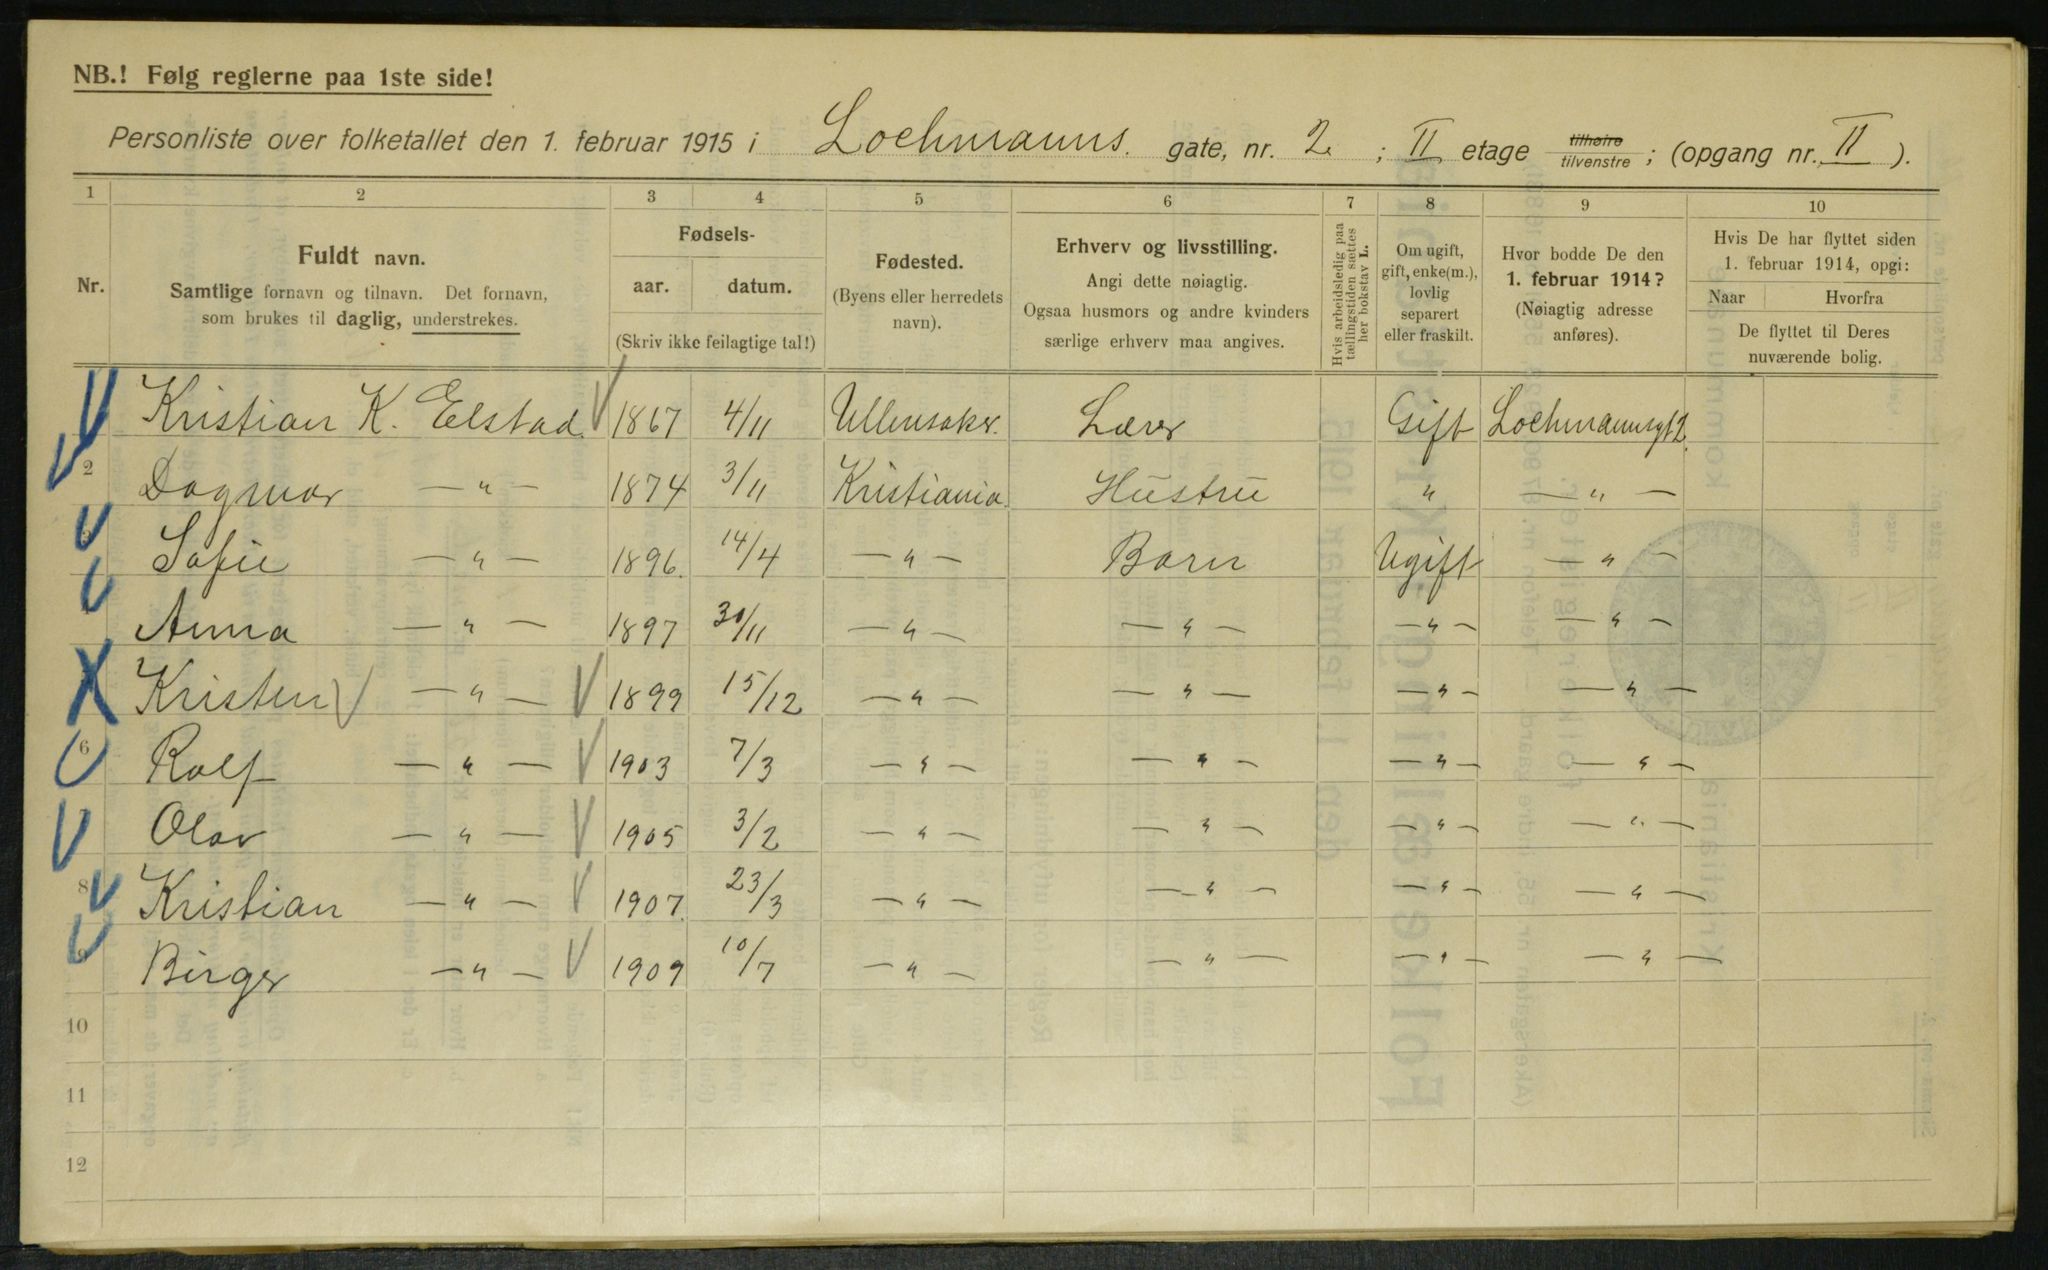 NB.! Følg reglerne paa 1ste side!
Personliste over folketallet den 1. februar 1915 i Lochmanns. gate, nr. 2. ; II etage tilhøire tilvenstre ; (opgang nr. II ).
1 2 3 4 5 6 7 8 9 10
Nr.
Fuldt navn.
Samtlige fornavn og tilnavn. Det fornavn,
som brukes til daglig, understrekes.
Fødsels-
aar. datum.
(Skriv ikke feilagtige tal!)
Fødested.
(Byens eller herredets
navn).
Erhverv og livsstilling.
Angi dette nøiagtig.
Ogsaa husmors og andre kvinders
særlige erhverv maa angives.
Hvis arbeidsledig paa
tællingstiden sættes
her bokstav L.
Om ugift,
gift, enke(m.),
lovlig
separert
eller fraskilt.
Hvor bodde De den
1. februar 1914?
(Nøiagtig adresse
anføres).
Hvis De har flyttet siden
1. februar 1914, opgi:
Naar Hvorfra
De flyttet til Deres
nuværende bolig.
Kristian K. Elstad. 1867 4/11 Ullensaker. Lærer Gift Lochmannsgt 2.
2 Dagmar — " — 1874 3/11 Kristiania. Hustru " — " —
3 Sofie — " — 1896. 14/4 — " — Barn Ugift — " —
4 Anna — " — 1897 30/11 — " — — " — — " — — " —
Kristen — " — 1899 15/12 — " — — " — — " — — " —
6 Rolf — " — 1903 7/3 — " — — " — — " — — " —
Olav — " — 1905 3/2 — " — — " — — " — — " —
8 Kristian — " — 1907. 23/3 — " — — " — — " — — " —
9 Birger — " — 1909 10/7 — " — — " — — " — — " —
10
11
12